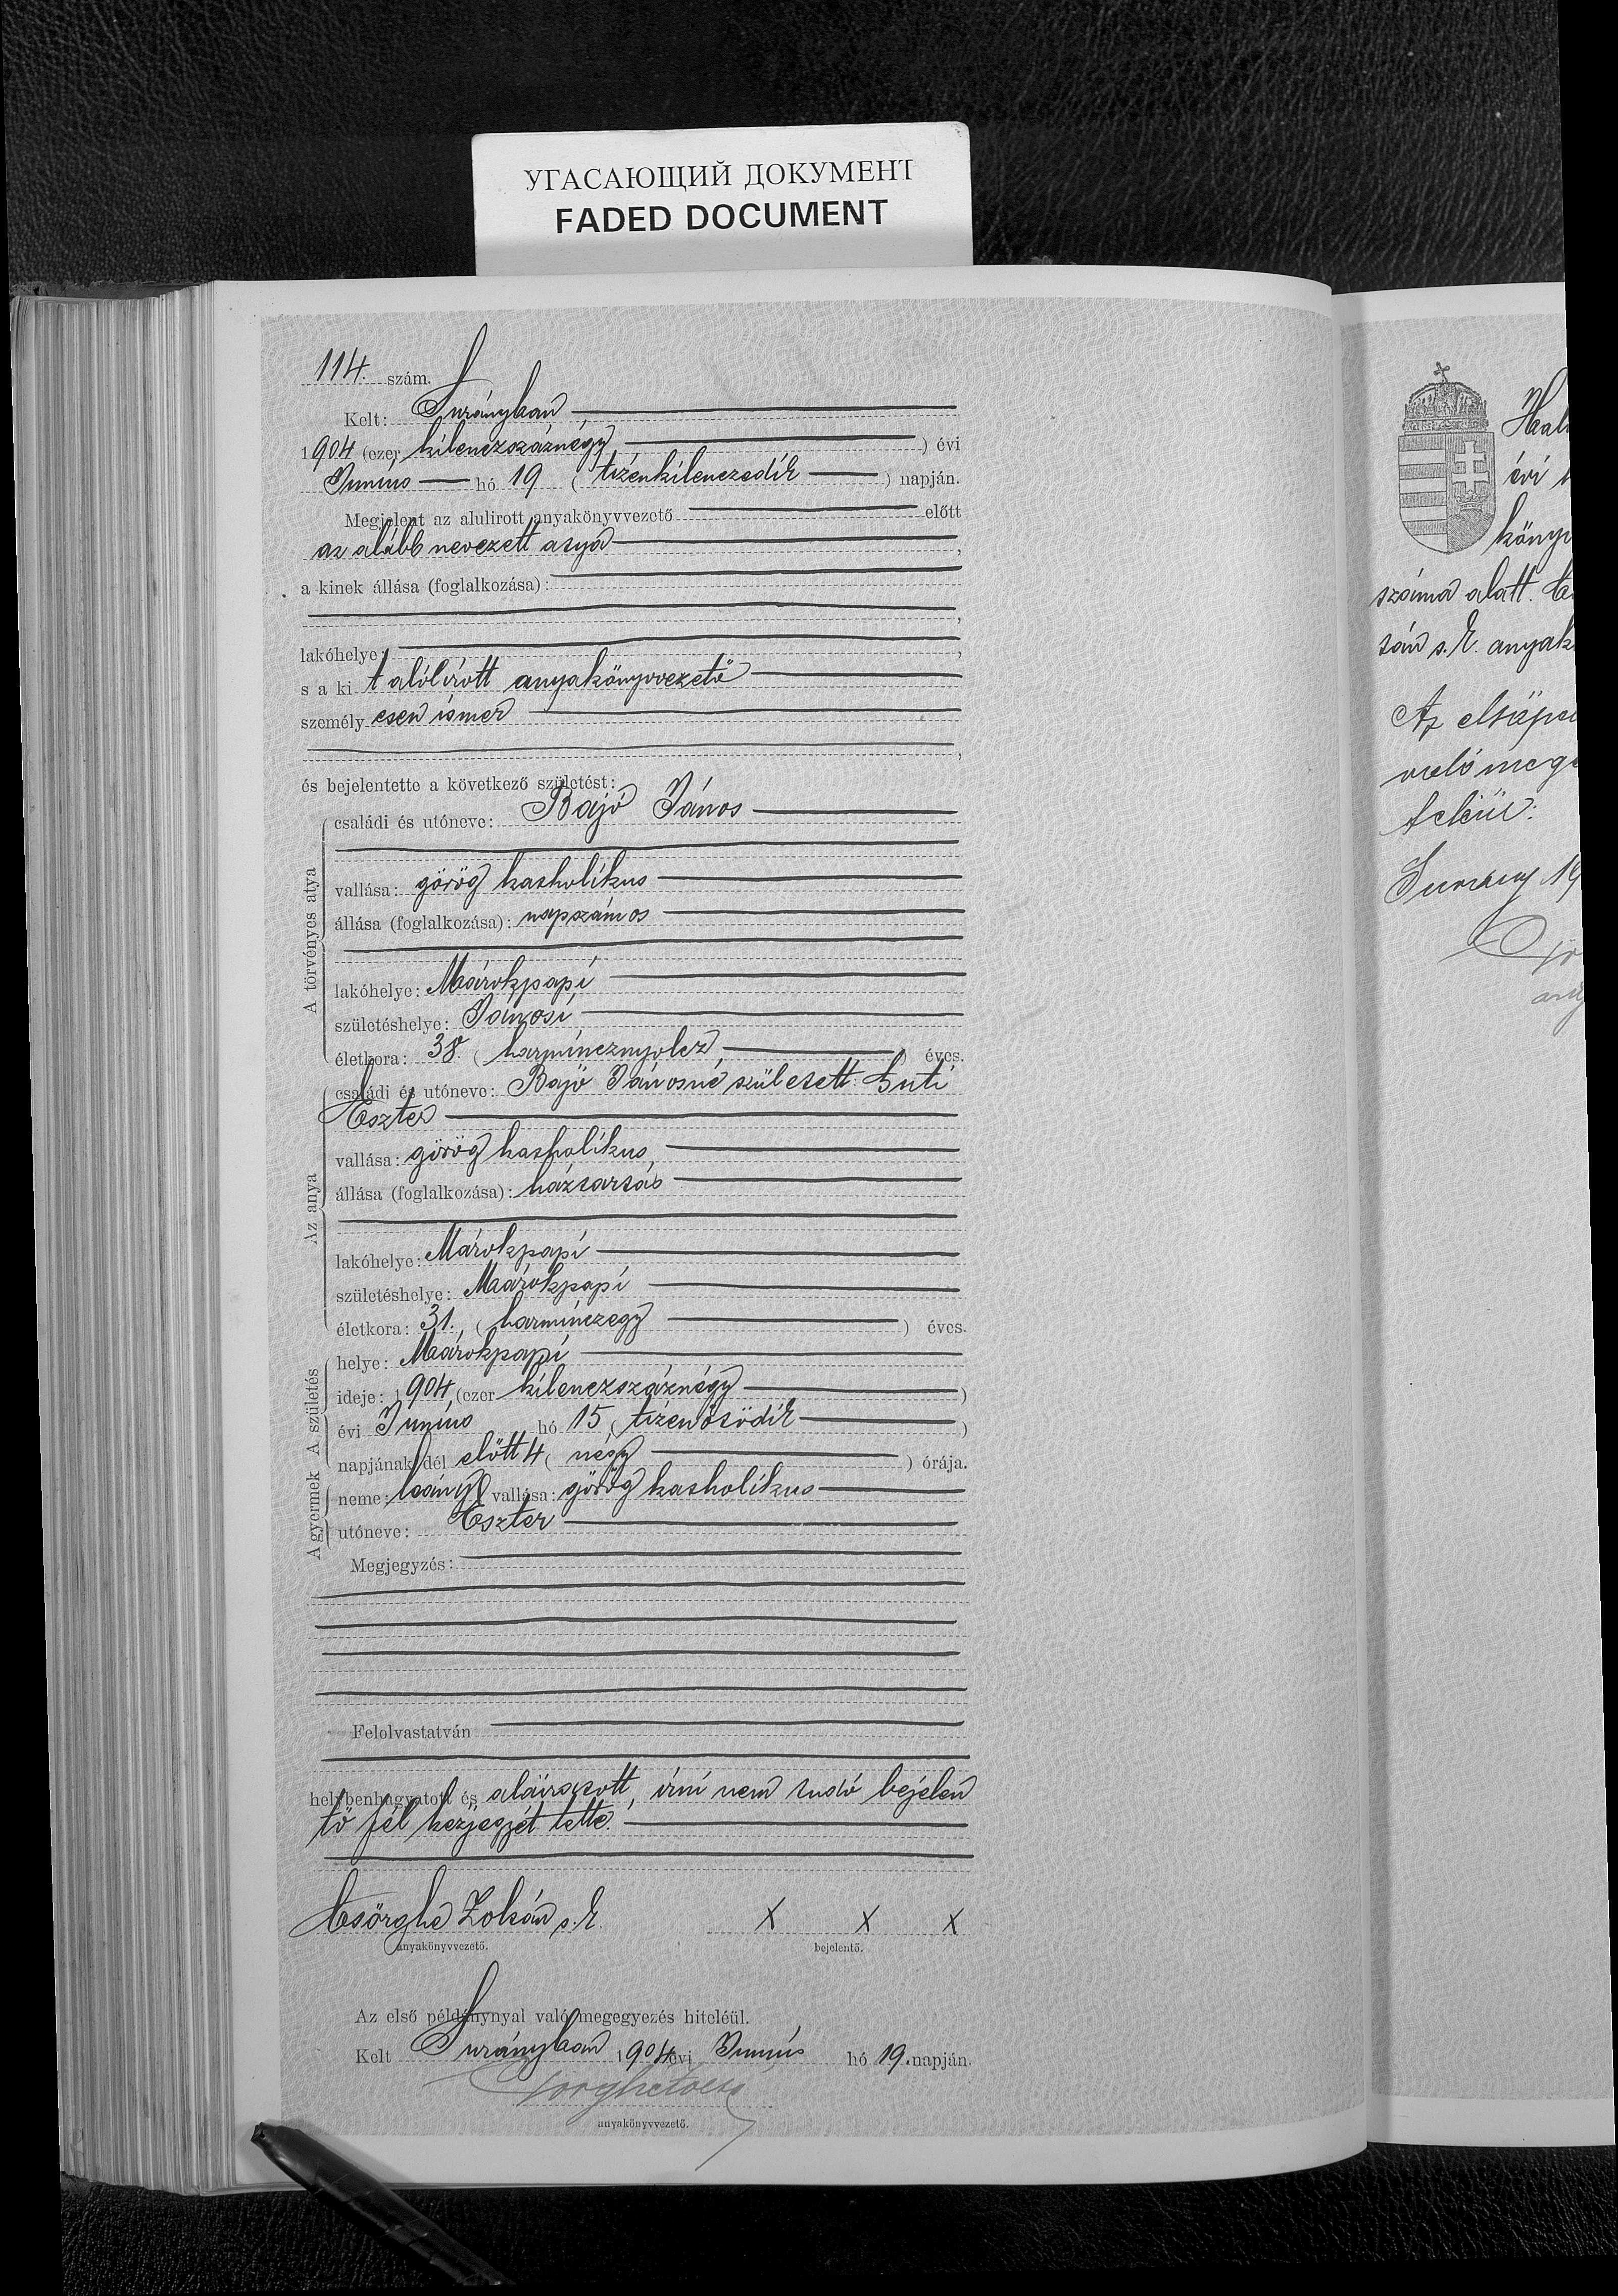 УГАСАЮЩИЙ ДОКУМЕНТ
FADED DOCUMENT
114. szám.
Kelt: Surányban
1904 (ezer kilenczszáznégy) évi
Junius hó 19 (tizenkilenczedik) napján.
Megjelent az alulirott anyakönyvvezető előtt
az alább nevezett atya,
a kinek állása (foglalkozása):
,
lakóhelye: ,
s a kit alólirott anyakönyvvezető
személyesen ismer
,
és bejelentette a következő születést:
A törvényes atya
családi és utóneve: Bajó János
vallása: görög katholikus
állása (foglalkozása): napszámos
lakóhelye: Márokpapi
születéshelye: Jánosi
életkora: 38. (harmincznyolcz) éves.
Az anya
családi és utóneve: Bajó Jánosné született
Eszter
vallása: görög katholikus,
állása (foglalkozása): háztartás
lakóhelye: Márokpapi
születéshelye: Márokpapi
életkora: 31., (harminczegy) éves.
A születés
helye: Márokpapi
ideje: 1904 (ezer kilenczszáznégy)
évi Junius hó 15 (tizenötödik)
napjának dél előtt 4 (négy) órája.
A gyermek
neme: leány vallása: görög katholikus
utóneve: Eszter
Megjegyzés:
Felolvastatván
helybenhagyatott és aláiratott, irni nem tudó bejelen
tő fél kézjegyét tette.
Csörghe Zoltán s.k.
X X X
anyakönyvvezető.
bejelentő.
Az első példánynyal való megegyezés hiteléül.
Kelt Surányban 1904 évi Junius hó 19. napján.
anyakönyvvezető.
évi
könyv
száma alatt.
tán s.k. anyak
Az első
való mege
teléül:
Surány 19